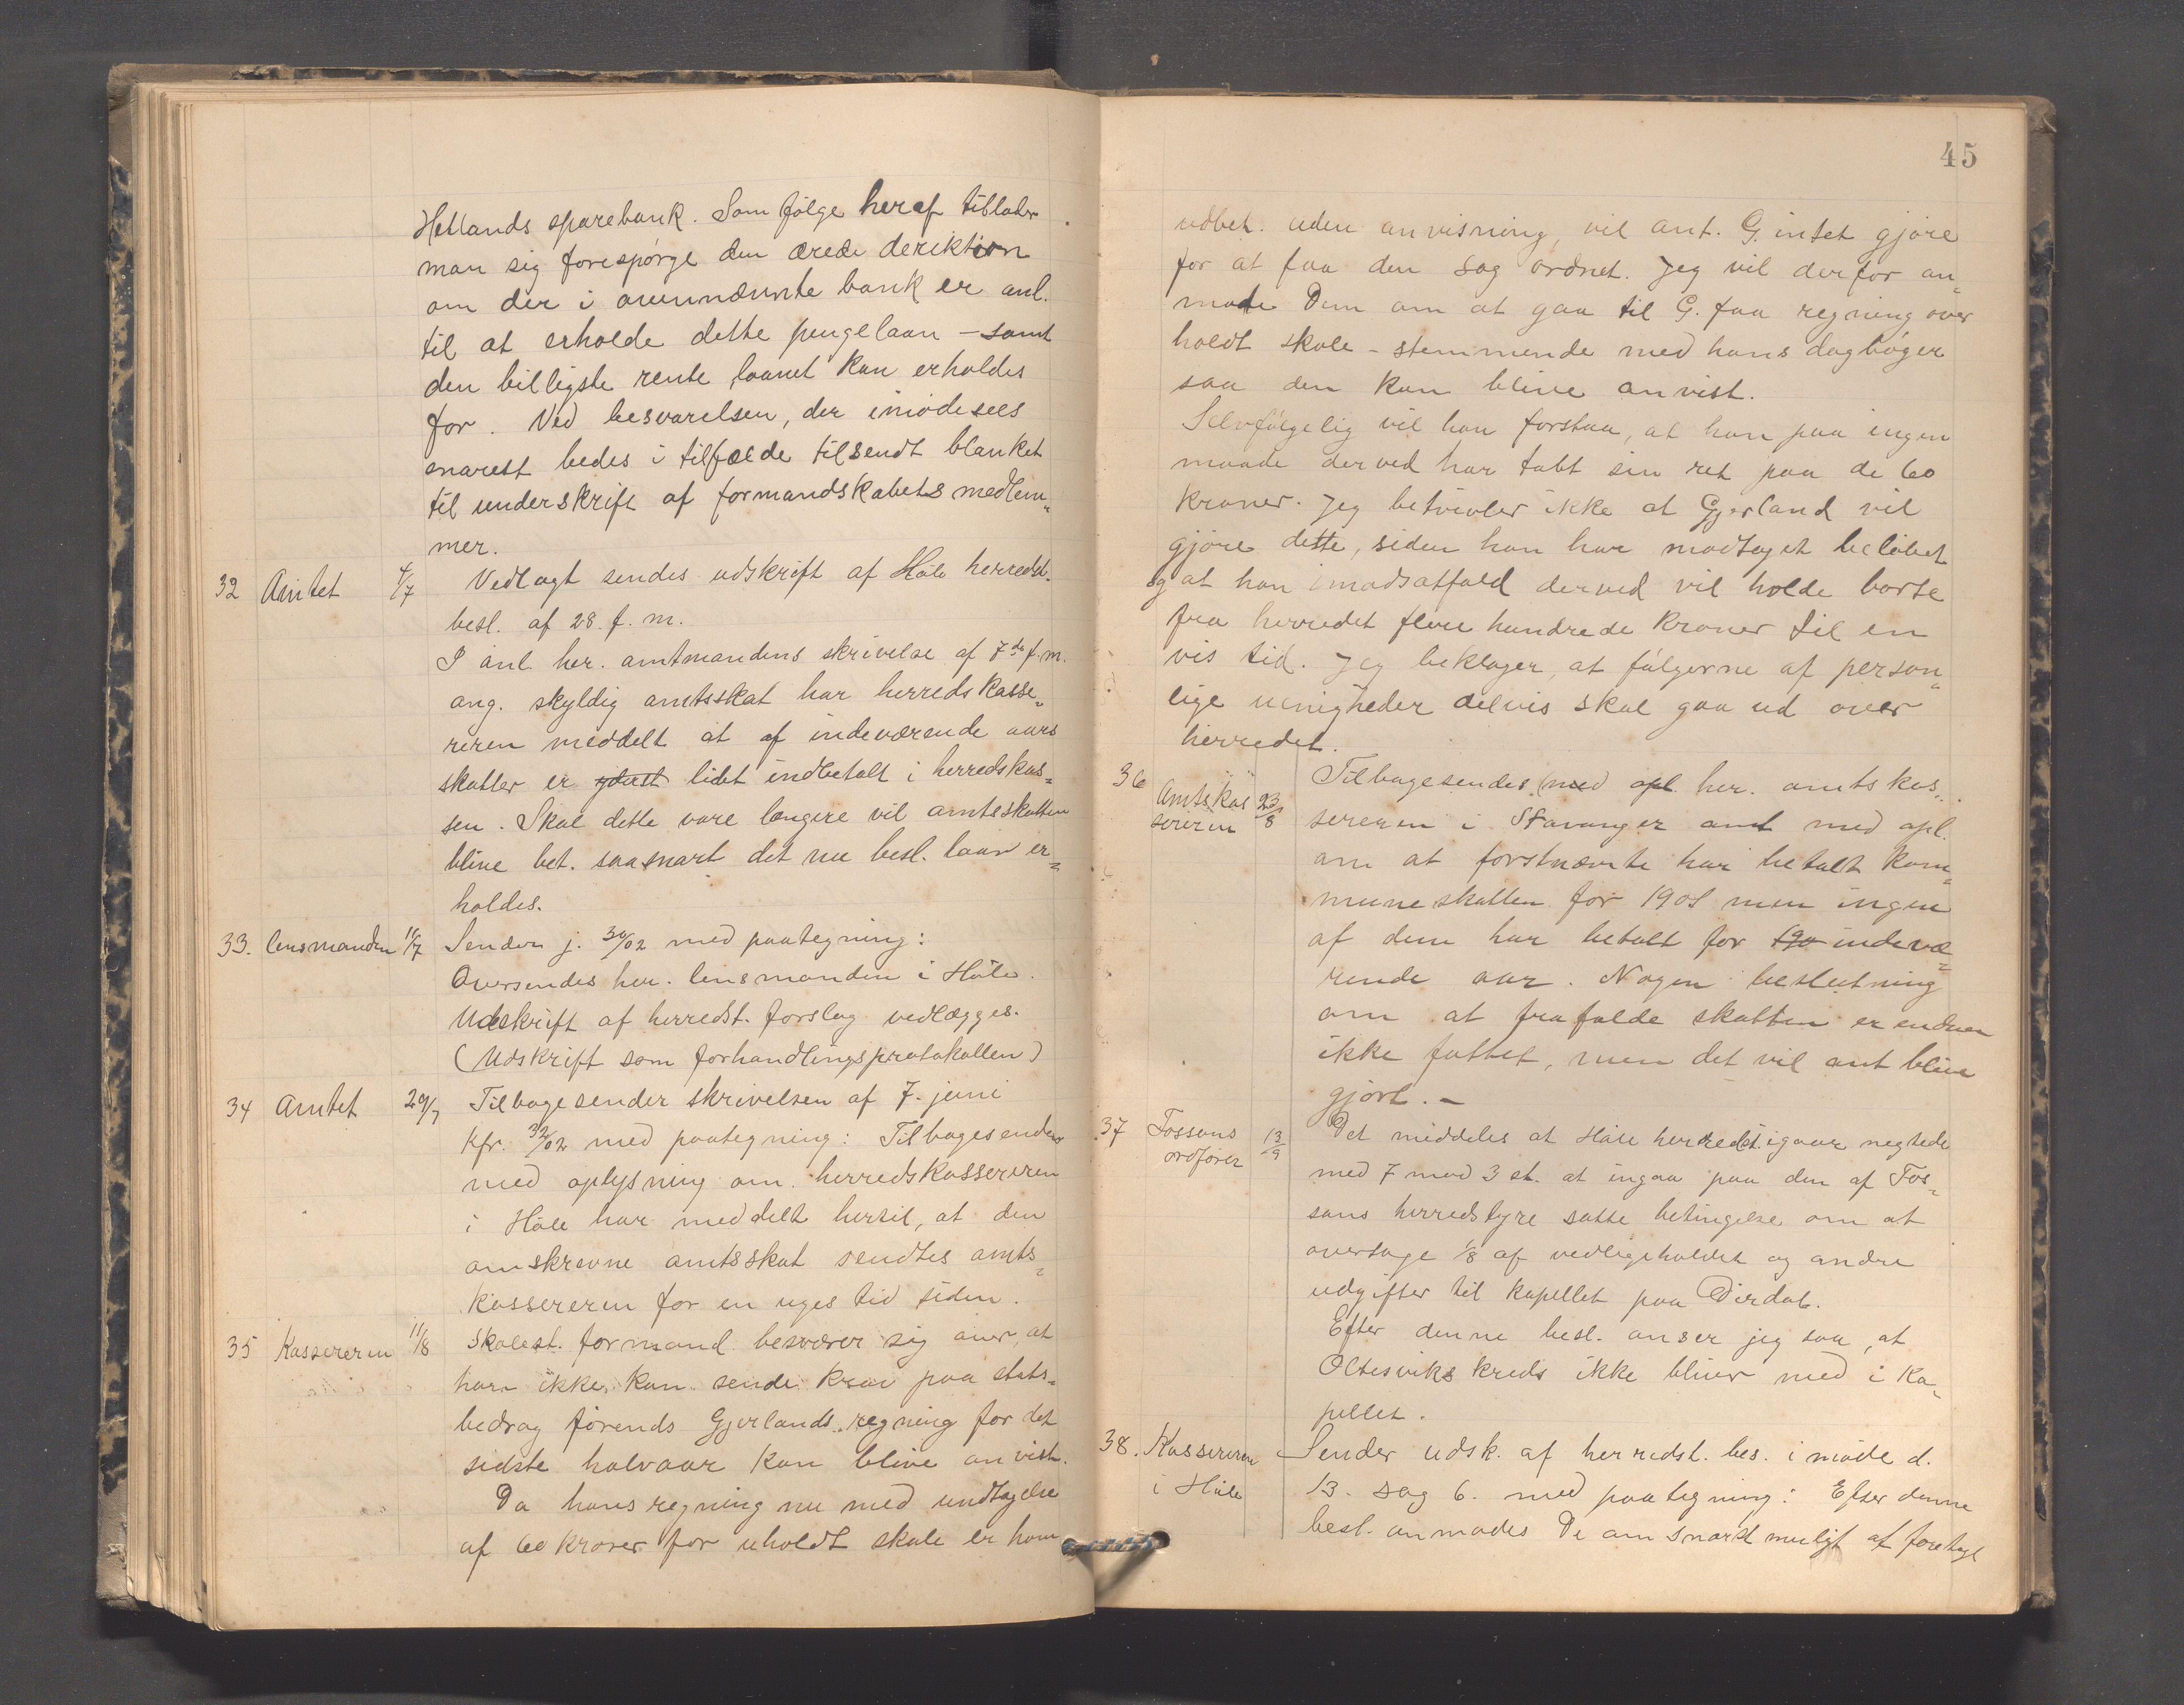 Hetlands sparebank. Som følge heraf tillader
man sig forespørge den ærede deriktion
om der i ovennævnte bank er anl.
til at erholde dette pengelaan – samt
den billigste rente laanet kan erholdes
for. Ved besvarelsen, der imødesees
snarest bedes i tilfælde tilsendt blanket
til underskrift af formandskabets medlem-
mer.
32 Amtet 4/7 Vedlagt sendes udskrift af Høle herredst.
besl. af 28. f. m.
I anl. her. amtmandens skrivelse af 7de f.m.
ang. skyldig amtsskat har herredskasse-
reren meddelt at af indeværende aars
skatter er lidet indbetalt i herredskas-
sen. Skal dette vare længere vil amtsskatten
blive bet. saasnart det nu besl. laan er-
holdes.
33. lensmanden 11/7 Sender j. 30/02 med paategning:
Oversendes her. lensmanden i Høle.
Udskrift af herredst. forslag vedlægges.
(Udskrift som forhandlingsprotokollen)
34 Amtet 29/7 Tilbagesender skrivelsen af 7. juni
Kfr. 32/02 med paategning: Tilbagesendes
med oplysning om herredskassereren
i Høle har meddelt hertil, at den
omskrevne amtsskat sendtes amts-
kassereren for en uges tid siden.
35 Kassereren 11/8 Skolest. formand besværer sig over, at
han ikke kan sende krav paa stats-
bedrag førends Gjerlands regning for det
sidste halvaar kan blive anvist.
Da hans regning nu med undtagelse
af 60 kroner for uholdt skole er ham
45
udbet. uden anvisning, vil ant. G. intet gjøre
for at faa den sag ordnet. Jeg vil derfor an-
mode Dem om at gaa til G. faa regning over
holdt skole – stemmende med hans dagbøger
saa den kan blive anvist.
Selvfølgelig vil han forstaa, at han paa ingen
maade derved har tabt sin ret paa de 60
kroner. Jeg betvivler ikke at Gjerland vil
gjøre dette, siden han har modtaget beløbet
og at han i modsatfald derved vil holde borte
fra herredet flere hundrede kroner til en
vis tid. Jeg beklager, at følgerne af person-
lige uenigheder delvis skal gaa ud over
herredet.
36 Amtskas 23/8 Tilbagesendes med opl. her. amtskas-
sereren sereren i Stavanger amt med opl.
om at forstnævnte har betalt kom-
muneskatten for 1901 men ingen
af dem har betalt for 190 indevæ-
rende aar. Nogen beslutning
om at frafalde skatten er endnu
ikke fattet, men det vil ant blive
gjort. –
37 Fossans 13/9 Det meddeles at Høle herredst. igaar negtede
ordfører med 7 mod 3 st. at ingaa paa den af Fos-
sans herredstyre satte betingelse om at
overtage 1/8 af vedligeholdet og andre
udgifter til kapellet paa Dirdal.
Efter denne besl. anser jeg saa, at
Oltesviks kreds ikke bliver med i ka-
pellet.
38. Kassereren Sender udsk. af herredst. bes. i møde d.
i Høle 13. sag 6. med paategning: Efter denne
besl. anmodes De om snarst muligt at foretage